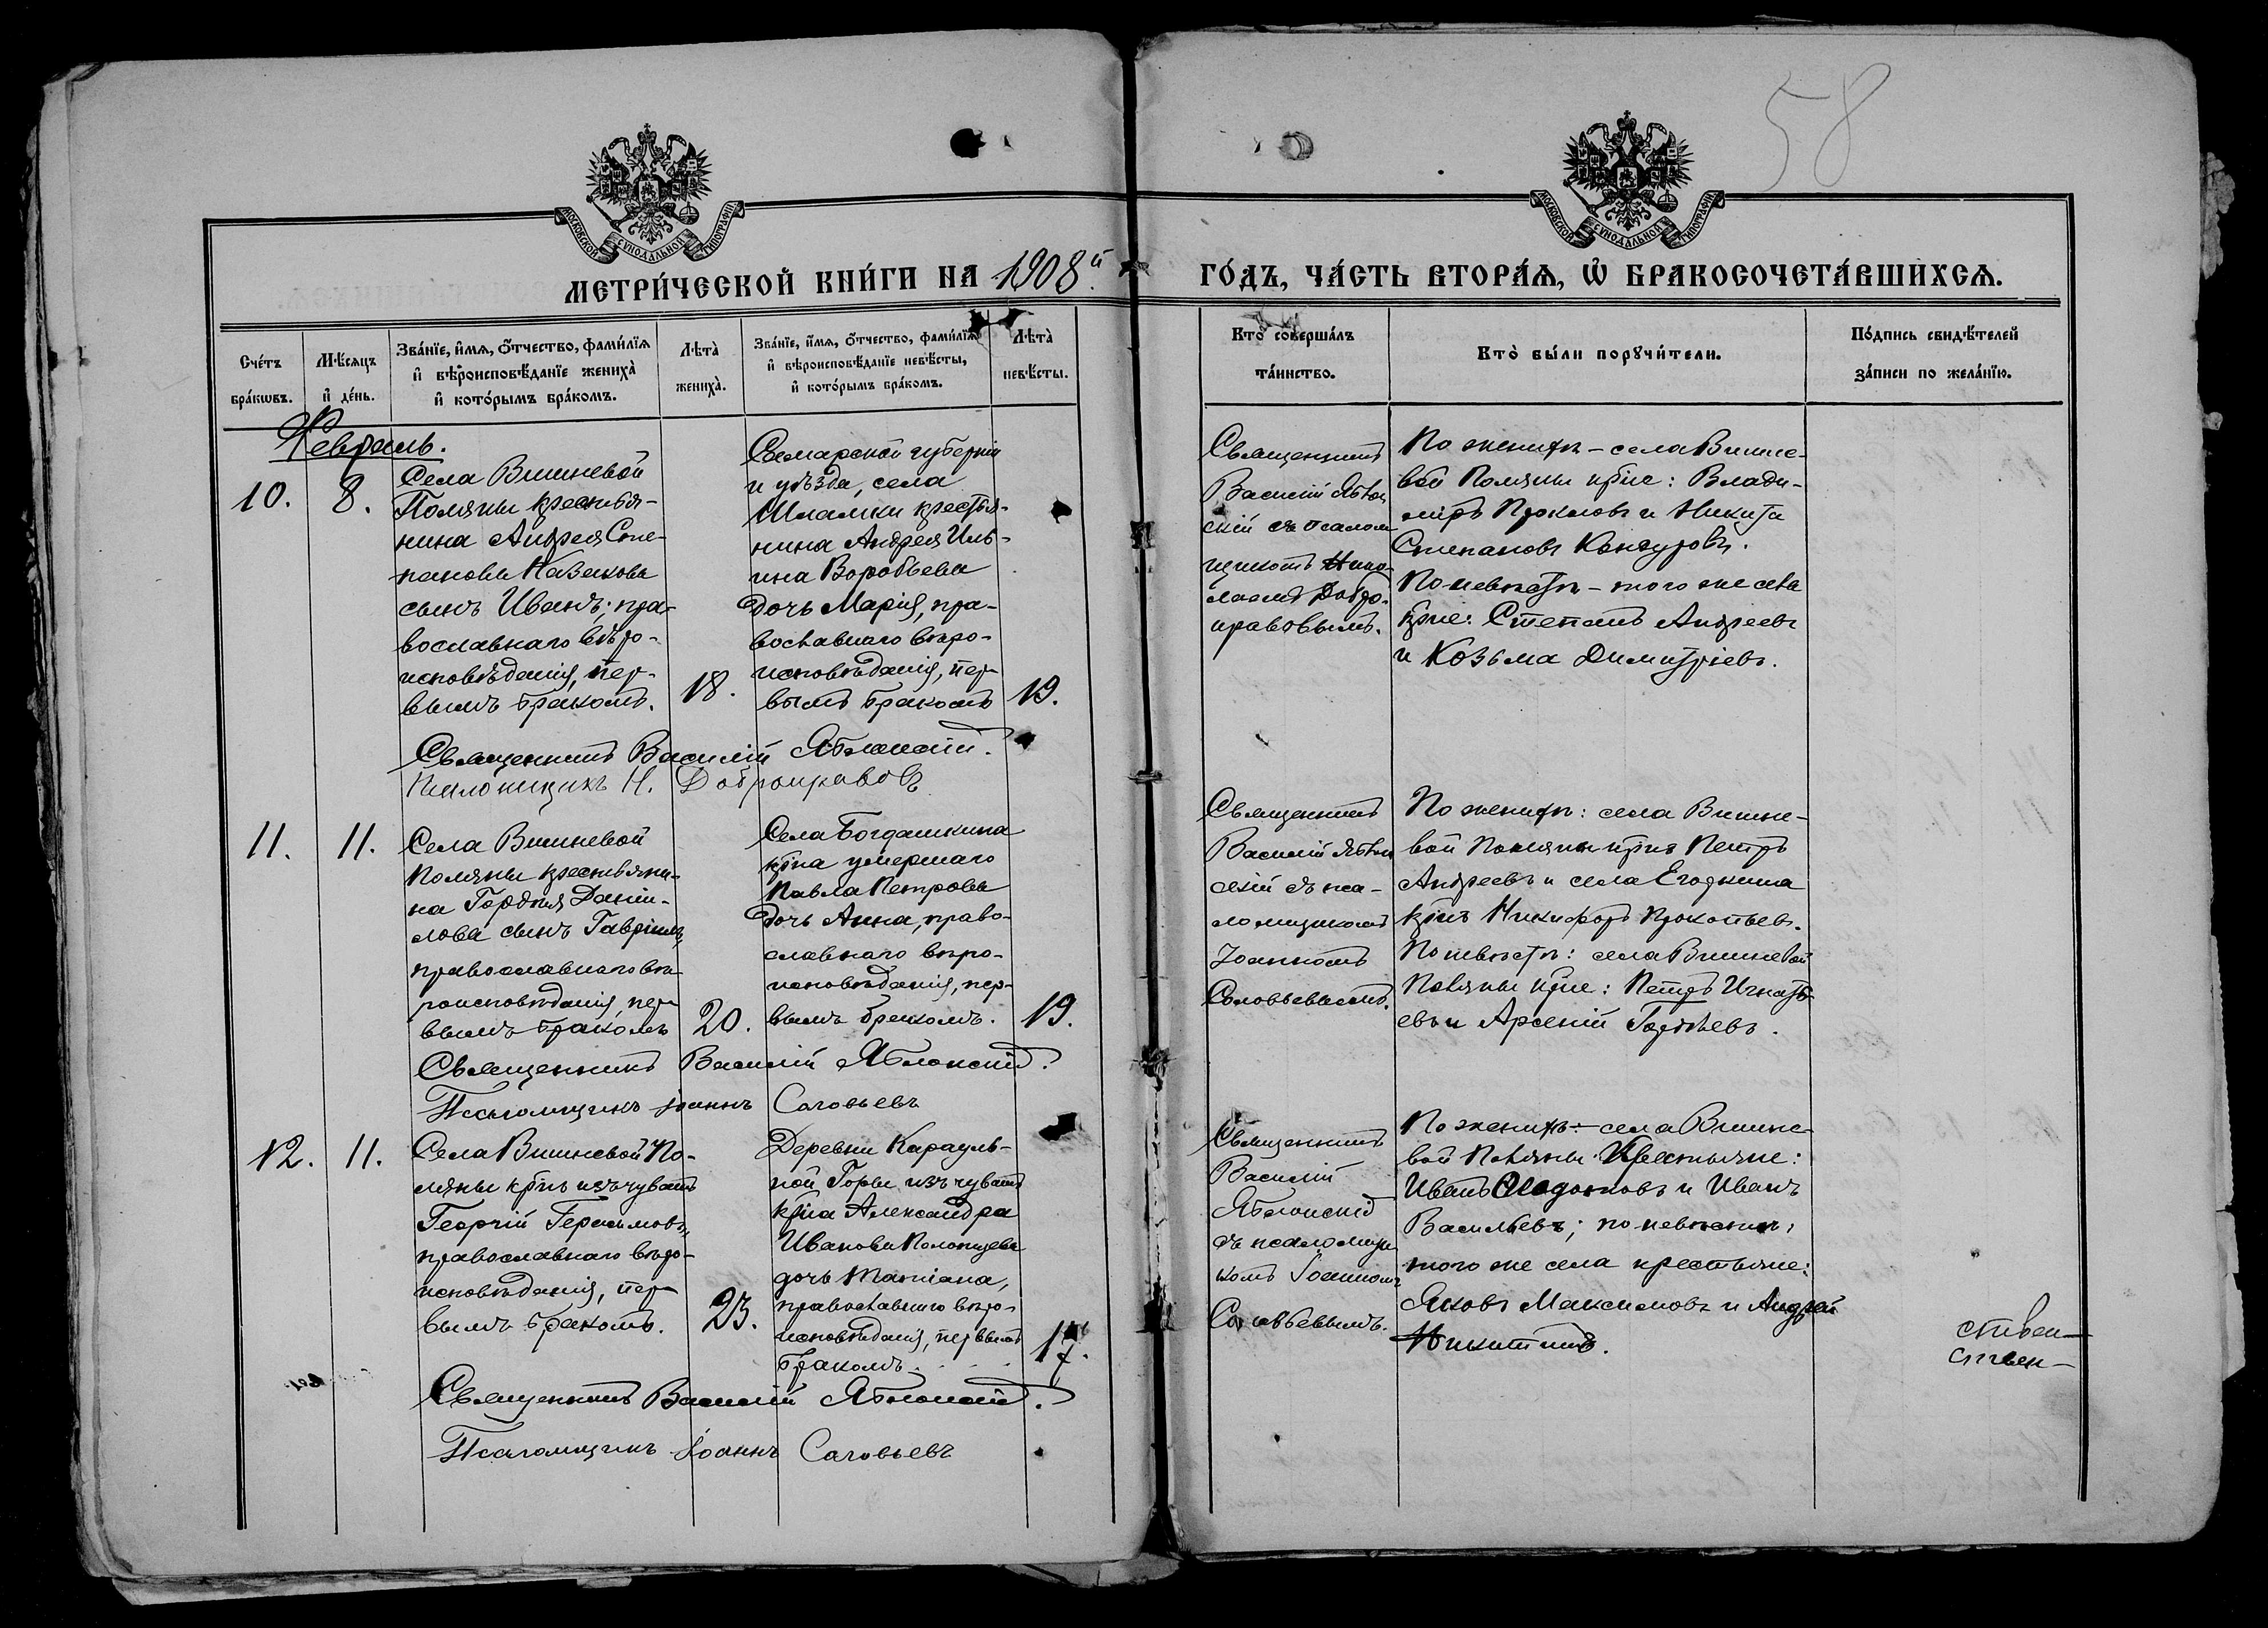 58
МОСКОВСКОЙ СѴНОДАЛЬНОЙ ТИПОГРАФІИ
МОСКОВСКОЙ СѴНОДАЛЬНОЙ ТИПОГРАФІИ
МЕТРИ́ЧЕСКОЙ КНИ́ГИ НА 1908й
ГО́ДЪ, ЧА́СТЬ ВТОРА́Ѧ, Ѽ БРАКОСОЧЕТА́ВШИХСѦ.
Сче́тъ
бра́кωвъ.
Мѣ́сяцъ
и҆ де́нь.
Зва́нїе, и҆́мѧ, ѻ҆́тчество, фами́лїѧ
и҆ вѣроисповѣ́данїе жениха̀
и҆ кото́рымъ бра́комъ.
Лѣ́та̀
жениха̀.
Зва́нїе, и҆́мѧ, ѻ҆́тчество, фами́лїѧ
и҆ вѣроисповѣ́данїе невѣ́сты,
и҆ кото́рымъ бра́комъ.
Лѣ́та̀
невѣ́сты.
Кто̀ соверша́лъ
та́инство.
Кто̀ бы́ли порꙋчи́тели.
По́дпись свидѣ́телей
за́писи по жела́нїю.
Февраль.
10.
8.
Села Вишневой
Поляны крестья-
нина Андрея Сте-
панова Казакова
сынъ Иванъ; пра-
вославнаго вѣро-
исповѣданія, пер-
вымъ бракомъ.
18.
Самарской губерніи
и уѣзда, села
Шламки крестья-
нина Андрея Иль-
ина Воробьева
дочь Марія, пра-
вославнаго вѣро-
исповѣданія, пер-
вымъ бракомъ
19.
Священникъ
Василій Яблон
скій съ псалом
щикомъ Нико-
лаемъ Добро-
нравовымъ.
По женихѣ – села Вишне-
вой Поляны кр͠не: Влади-
миръ Прокловъ и Никита
Степановъ
По невѣстѣ – того же села
кр͠не: Степанъ Андреевъ
и Козьма Димитріевъ.
Священникъ Василій Яблонскій.
Псаломщикъ Н. Добронравовъ
11.
11.
Села Вишневой
Поляны крестьяни-
на Гордѣя Дании-
лова сынъ Гавріилъ,
православнаго вѣ-
роисповѣданія, пер-
вымъ бракомъ
20.
Села Богдашкина
кр͠на умершаго
Павла Петрова
дочь Анна, право-
славнаго вѣро-
исповѣданія, пер-
вымъ бракомъ.
19.
Священникъ
Василій Яблон
скій съ пса-
ломщикомъ
Іоанномъ
Соловьевымъ.
По женихѣ: села Вишне-
вой Поляны кр͠нъ Петръ
Андреевъ и села Егоркина
кр͠нъ Никифоръ Прокопьевъ.
По невѣстѣ: села Вишневой
Поляны кр͠не: Петръ Игнать-
евъ и Арсеній Гордѣевъ.
Священникъ Василій Яблонскій.
Псаломщикъ Іоаннъ Соловьевъ
12.
11.
Села Вишневой По-
ляны кр͠нъ изъ чувашъ
Георгій Герасимовъ,
православнаго вѣро-
исповѣданія, пер-
вымъ бракомъ.
23.
Деревни Карауль-
ной Горы изъ чувашъ
кр͠на Александра
Иванова
дочь Татіана,
православнаго вѣро-
исповѣданія, первымъ
бракомъ.
17.
Священникъ
Василій
Яблонскій
съ псаломщи
комъ Іоанномъ
Соловьевымъ.
По женихѣ: – села Вишне-
вой Поляны крестьяне:
Иванъ и Иванъ
Васильевъ; по невѣстѣ:
того же села крестьяне:
Яковъ Максимовъ и Андрей
Никитинъ.
ствен—
ствен—
Священникъ Василій Яблонскій.
Псаломщикъ Іоаннъ Соловьевъ